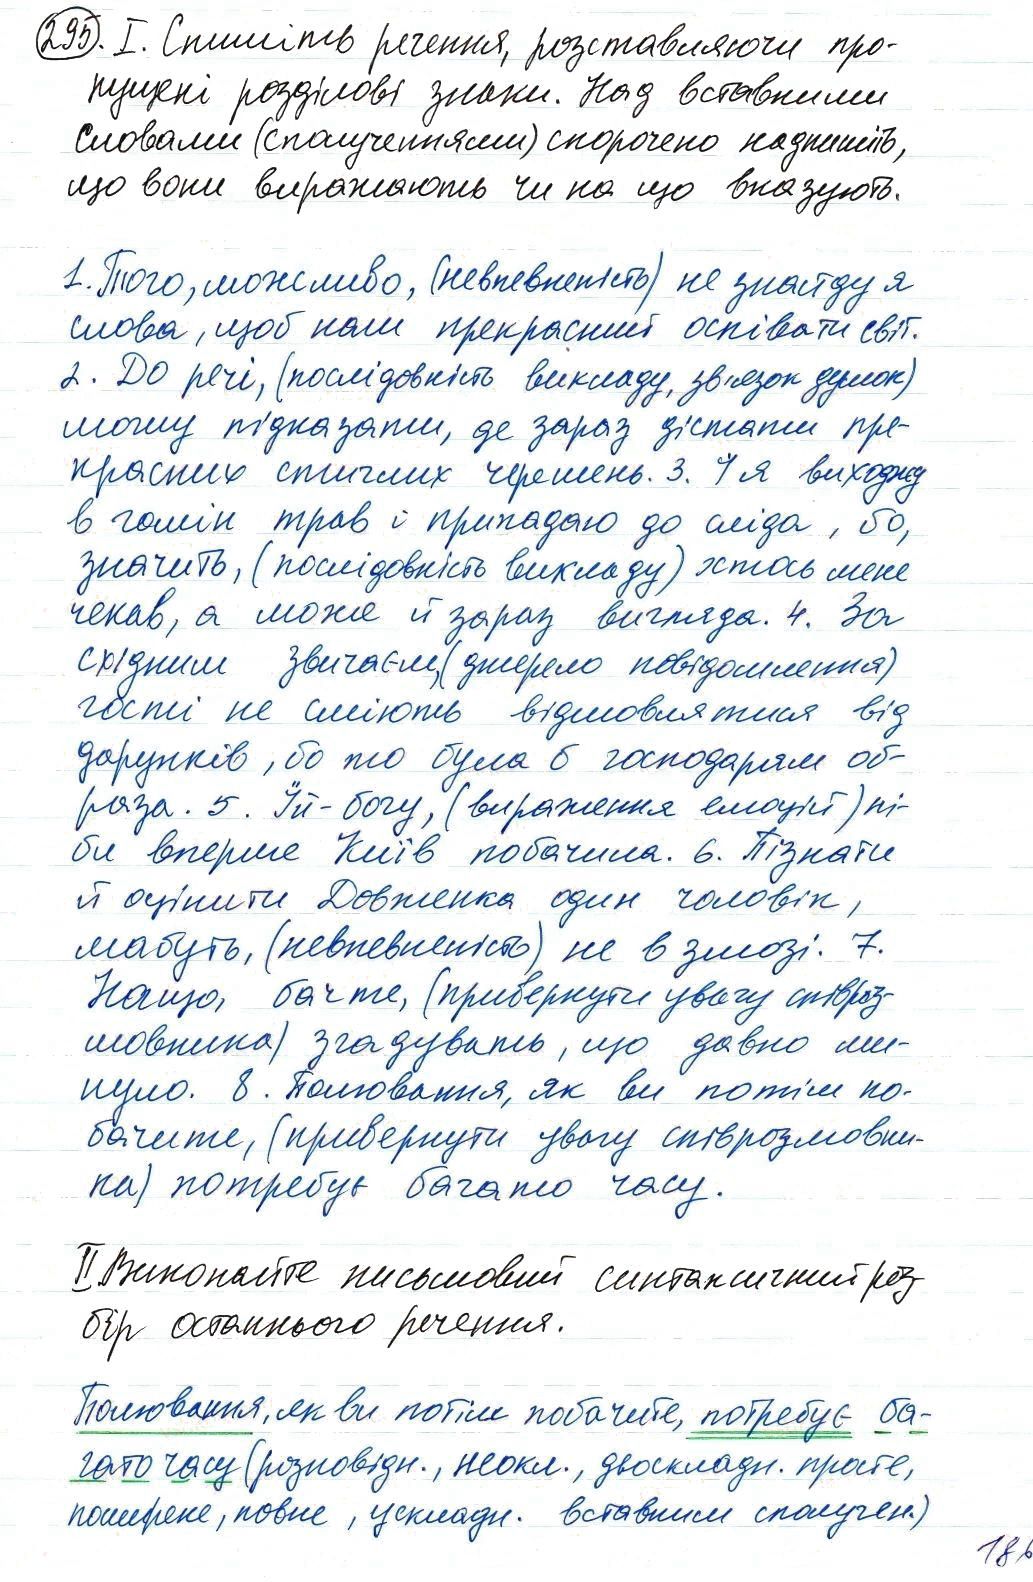 295. I. Спишіть речення, розставляючи про-
пущені розділові знаки. Над вставними
словами (сполученнями) скорочено надпишіть,
що вони виражають чи на що вказують.
1. Того, можливо, (невпевненість) не знайду я
слова, щоб наш прекрасний оспівати світ.
2. До речі, (послідовність викладу, зв'язок думок)
можу підказати, де зараз дістати пре-
красних стиглих черешень. 3. І я виходжу
в гомін трав і припадаю до сліда, бо,
значить, (послідовність викладу) хтось мене
чекав, а може й зараз вигляда. 4. За
східним звичаєм, (джерело повідомлення)
гості не сміють відмовлятися від
дарунків, бо то була б господарям об-
раза. 5. Їй-богу, (вираження емоцій) ні-
би вперше Київ побачила. 6. Пізнати
й оцінити Довженка один чоловік,
мабуть, (невпевненість) не в змозі. 7.
Нащо, бачте, (привернути увагу співроз-
мовника) згадувать, що давно ми-
нуло. 8. Полювання, як ви потім по-
бачите, (привернути увагу співрозмовни-
ка) потребує багато часу.
II Виконайте письмовий синтаксичний роз
бір останнього речення.
Полювання, як ви потім побачите, потребує ба-
гато часу (розповідн., неокл., двоскладн. просте,
поширене, повне, ускладн. вставним сполучен.)
186